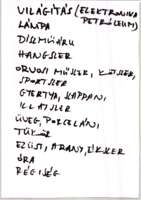 VILÁGÍTÁS (ELEKTRONIKA
PETRÓLEUM)
LÁMPA
DÍSZMŰÁRU
HANGSZER
ORVOSI MŰSZER,
SPORTSZER
GYERTYA, SZAPPAN,
ILLATSZER
ÜVEG, PORCELÁN,
TÜKÖR
EZÜST, ARANY, ÉKSZER
ÓRA
RÉGISÉG